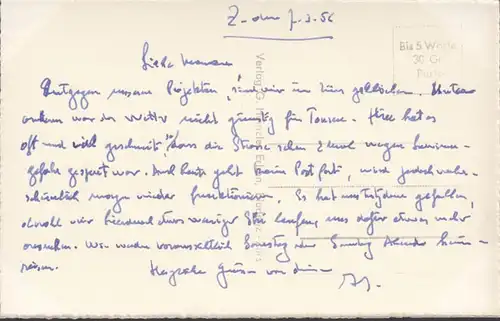 Z. den 7.3.56
Bis 5 Worte
30 Gr.
Porto
Liebe Mamma
Entgegen unseren Projekten, sind wir in Zürs geblieben. Unter
anderem war das Wetter nicht günstig für Touren. Hier hat es
oft und viel geschneit, dass die Strasse schon 2 mal wegen Lawinen-
gefahr gesperrt war. Auch heute geht keine Post fort, wird jedoch wahr-
scheinlich morgen wieder funktionieren. Es hat uns trotzdem gefallen,
obwohl wir hierdurch etwas weniger Ski laufen, uns dafür etwas mehr
ausruhen. Wir werden voraussichtlich Samstag oder Sonntag Abend heim-
reisen.
Herzliche Grüsse von deinem
Verlag